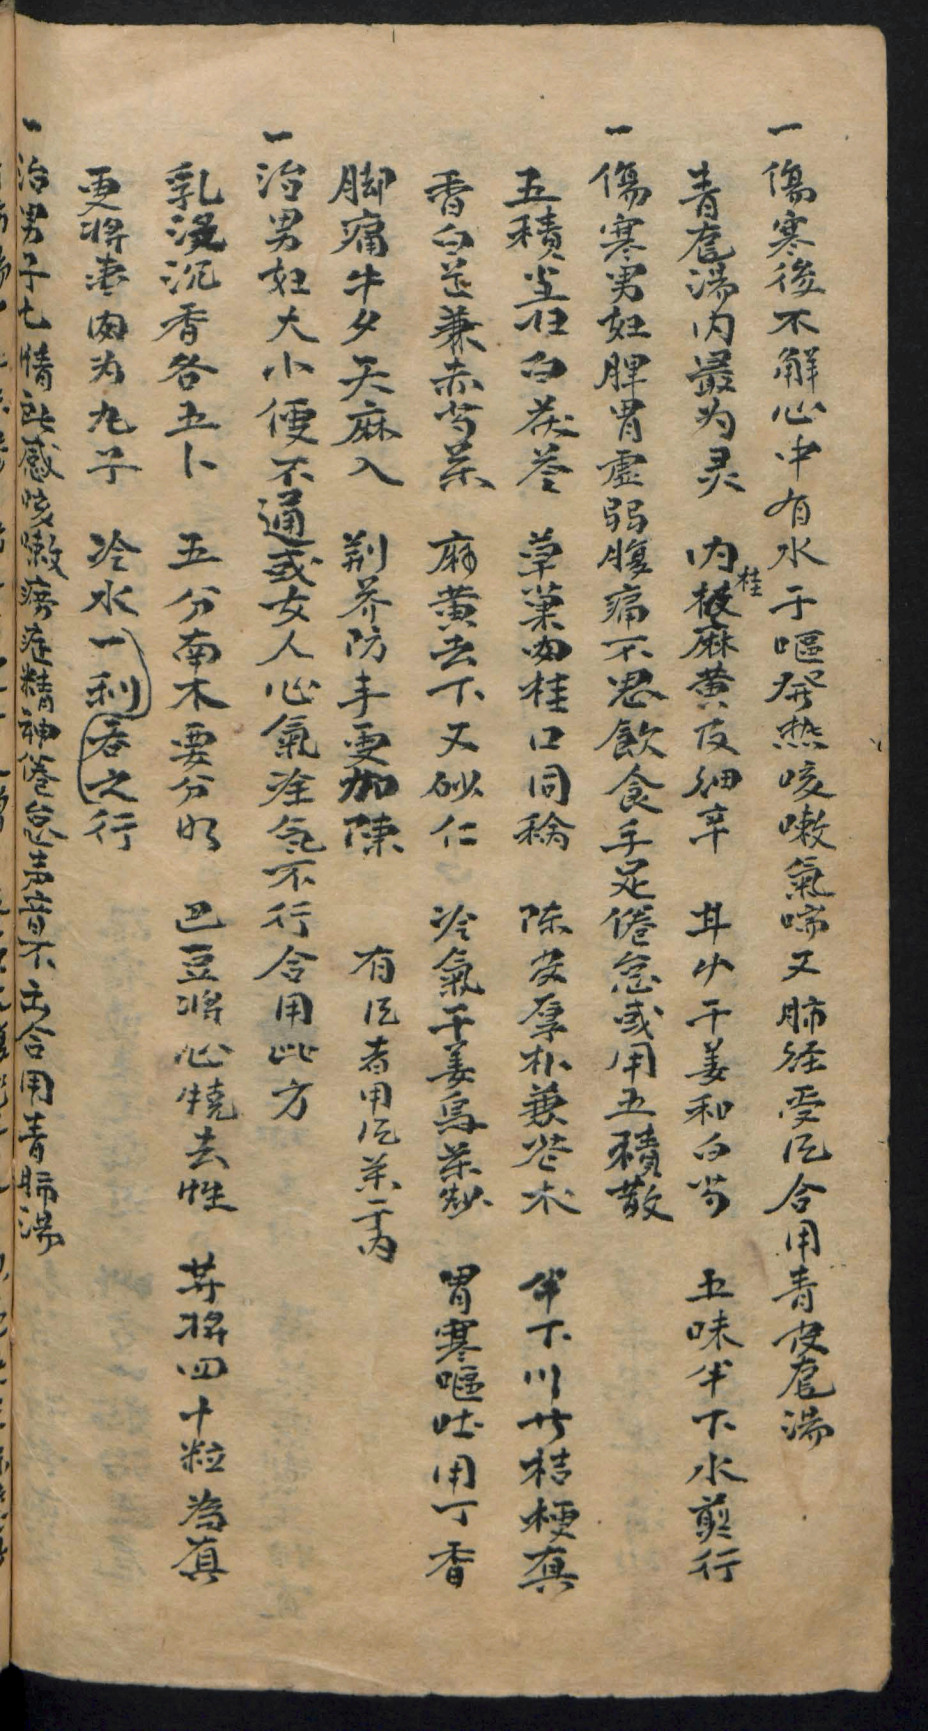 一傷寒後不解心中有水干嘔發热咳嗽氣喘又肺经受氏合用青皮龙湯
青龙湯内最为灵 内桂麻黄皮细辛 甘艸干姜和白芍 五味半下水煎行
一傷寒男妇脾胃虚弱腹痛不思飲食手足倦怠或用五積散
五積当归白茯苓 草菓肉桂口同 陈皮厚朴兼苍术 半下川芎桔梗真
香白芷兼赤芍药 麻黄去下又砂仁 冷氣干姜烏药炒 胃寒嘔吐用丁香
脚痛牛夕天麻入 荆芥防丰更加陳 有氏者用氏药一为
一治男妇大小便不通或女人心氣淦气不行合用此方
乳没沉香各五卜 五分南木要分明 巴豆将心燒去性 并将四十粒為真
更将枣肉为九子 冷水一利吞之行
一治男子七情所感咳嗽痨症精神倦怠声音不出合用青肺湯